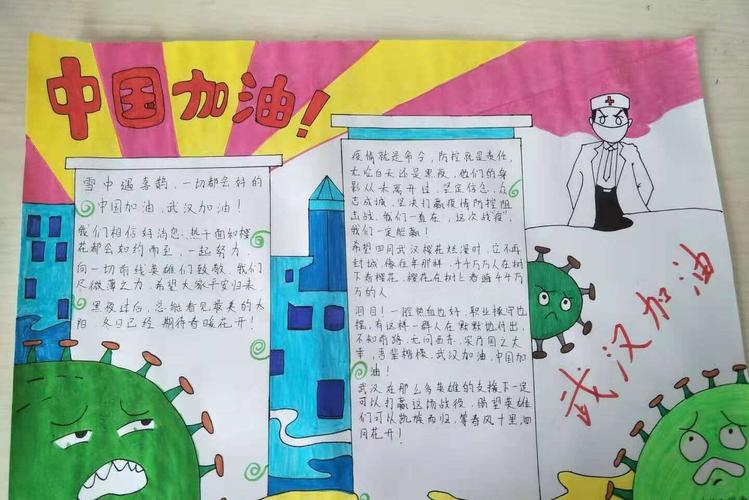 中国加油!
雪中遇喜鹊,一切都会好的
中国加油,武汉加油!
我们相信好消息,热干面和樱
花都会如约而至,一起努力
向一切前线英雄们致敬,我们
尽微薄之力,希望大家平安归来
黑夜过后,总能看见最美的太
阳,冬日已经 期待春暖花开!
疫情就是命令,防控就是责任,
无论白天还是黑夜,他们的身
影从未离开过,坚定信念,众
志成城,坚决打赢疫情防控阻
击战,我们一直在,这次战"疫",
我们一定能赢!
希望四月武汉樱花烂漫时,立不再
封城,像往年那样,44万万人在树
下看樱花,樱花在树上看画44万
万的人
泪目!一腔热血也好,职业操守也
罢,有这样一群人在默默地付出,
不知前路,无问西东,实乃国之大
幸,吾辈楷模,武汉加油,中国加
油!
武汉在那么多英雄的支援下一定
可以打赢这场战役,隔望英雄
们可以凯旋而归,等春风十里,四
月花开!
武汉加油